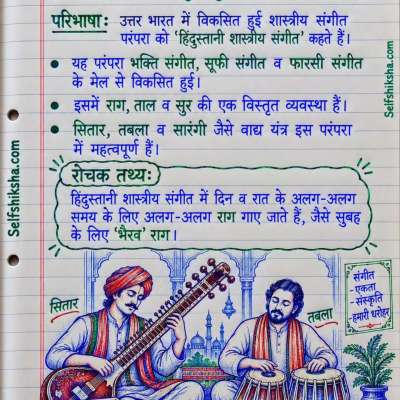 परिभाषाः उत्तर भारत में विकसित हुई शास्त्रीय संगीत
परंपरा को 'हिंदुस्तानी शास्त्रीय संगीत' कहते हैं।
यह परंपरा भक्ति संगीत, सूफी संगीत व फारसी संगीत
के मेल से विकसित हुई।
इसमें राग, ताल व सुर की एक विस्तृत व्यवस्था हैं।
सितार, तबला व सारंगी जैसे वाद्य यंत्र इस परंपरा
में महत्वपूर्ण हैं।
रोचक तथ्यः
हिंदुस्तानी शास्त्रीय संगीत में दिन व रात के अलग-अलग
समय के लिए अलग-अलग राग गाए जाते हैं, जैसे सुबह
के लिए 'भैरव' राग।
सितार
तबला
संगीत
-एकता
-संस्कृति
-हमारी धरोहर
Selfshiksha.com
Selfshiksha.com